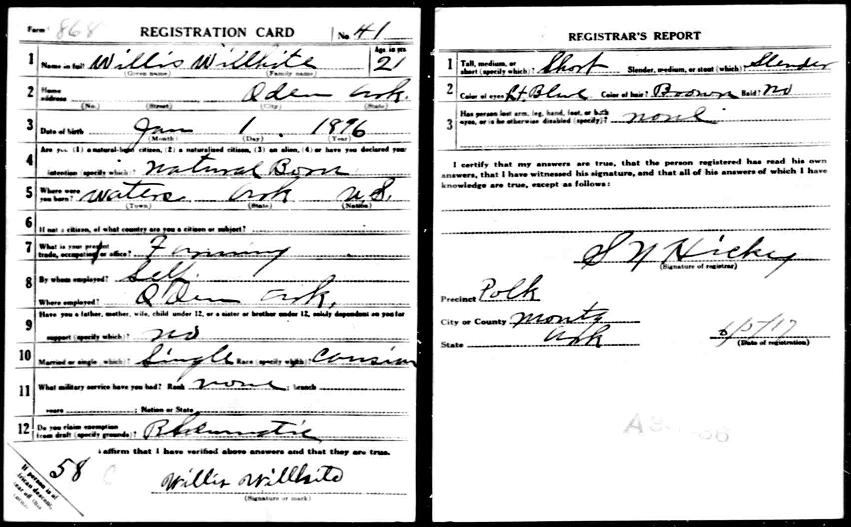 Form 868 REGISTRATION CARD No. 41
1 Name in full Willis Willhite Age, in yrs. 21
(Given name) (Family name)
2 Home address Oden Ark.
(No.) (Street) (City) (State)
3 Date of birth Jan 1 1896
(Month) (Day) (Year)
Are you (1) a natural-born citizen, (2) a naturalized citizen, (3) an alien, (4) or have you declared your
4 intention (specify which)? Natural Born
5 Where were you born? Waters Ark U.S.
(Town) (State) (Nation)
6 If not a citizen, of what country are you a citizen or subject?
7 What is your present trade, occupation, or office? Farming
8 By whom employed? Self
Where employed? O'Den Ark.
Have you a father, mother, wife, child under 12, or a sister or brother under 12, solely dependent on you for
9 support (specify which)? no
10 Married or single (which)? Single Race (specify which)?
11 What military service have you had? Rank none ; branch
years ; Nation or State
12 Do you claim exemption from draft (specify grounds)? Rheumatic
I affirm that I have verified above answers and that they are true.
58
Willis Willhite
(Signature or mark)
If person is of
African descent,
tear off this
corner.
REGISTRAR'S REPORT
1 Tall, medium, or short (specify which)? Short Slender, medium, or stout (which)? Slender
2 Color of eyes Lt. Blue Color of hair? Brown Bald? No
3 Has person lost arm, leg, hand, foot, or both eyes, or is he otherwise disabled (specify)? none
I certify that my answers are true, that the person registered has read his own
answers, that I have witnessed his signature, and that all of his answers of which I have
knowledge are true, except as follows:
S N Hickey
(Signature of registrar)
Precinct Polk
City or County Montg
State Ark 6/5/17
(Date of registration)